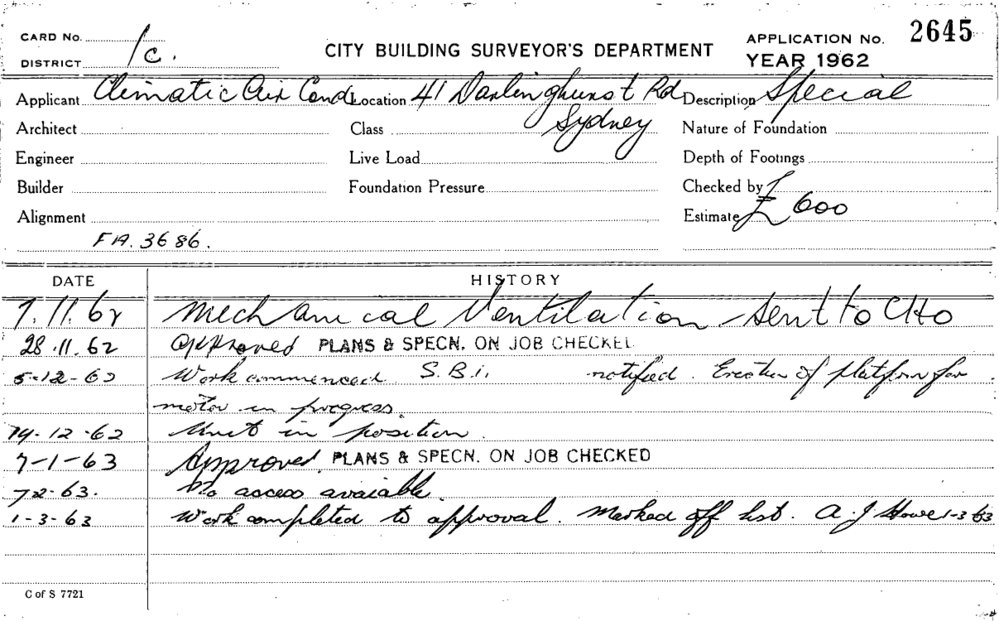 CARD No.
DISTRICT 1c.
CITY BUILDING SURVEYOR'S DEPARTMENT
APPLICATION No. 2645
YEAR 1962
Applicant Climatic Air Cond. Location 41 Darlinghurst Rd Description Special
Sydney
Architect Class Nature of Foundation
Engineer Live Load Depth of Footings
Builder Foundation Pressure Checked by
Alignment Estimate £600
FA. 3686.
DATE HISTORY
7.11.62 Mechanical Ventilation sent to CHO
28.11.62 Approved PLANS & SPECN. ON JOB CHECKED
5-12-62 Work commenced S.B.i. notified. Erection of platform for
motor in progress.
19-12-62 Unit in position.
7-1-63 Approved PLANS & SPECN. ON JOB CHECKED
7-2-63. No access avaiable.
1-3-63 Work completed to approval. Marked off list. A. J Howe 1-3-63
C of S 7721